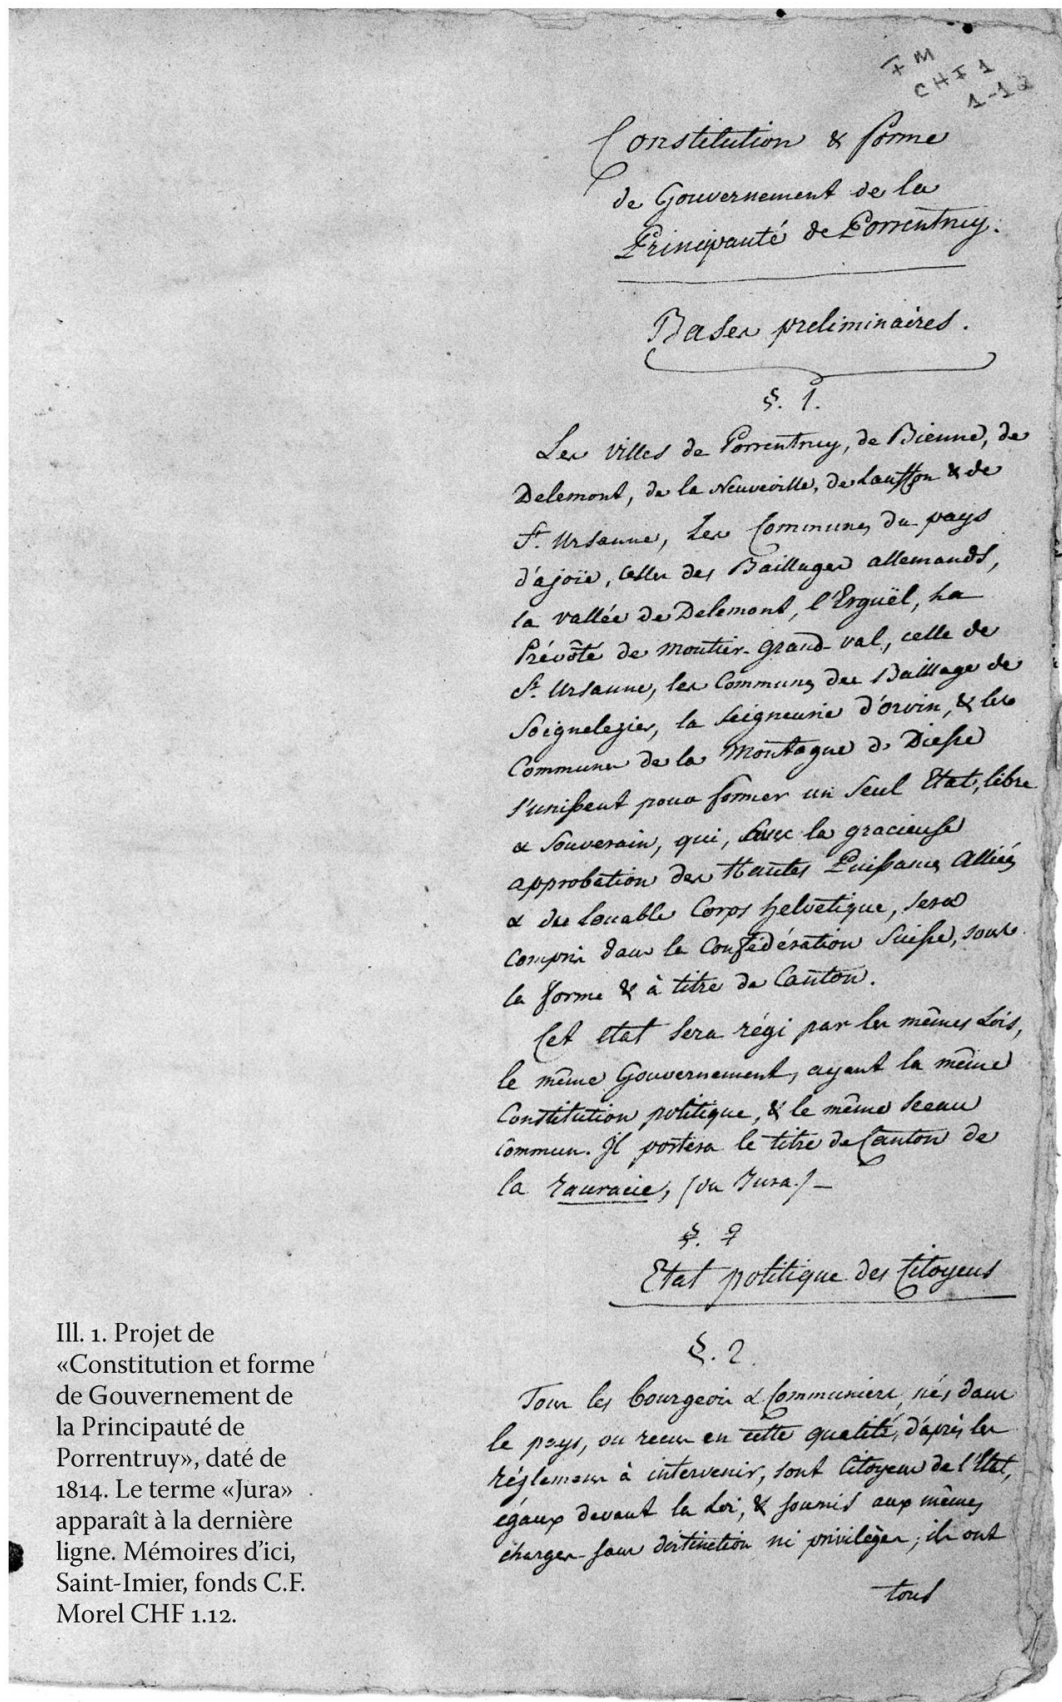 FM
CHF 1
1-12
Constitution & forme
de Gouvernement de la
Principauté de Porrentruy.
Bases preliminaires.
§. 1.
Les villes de Porrentruy, de Bienne, de
Delemont, de la Neuveville, de Lauffon & de
St. Ursanne, Les Communes du pays
d'ajoïe, celles des Baillages allemands,
la vallée de Delemont, l'Erguël, La
Prévôté de Moutier-Grand-val, celle de
St. Ursanne, les Communes des Baillage de
Soignelegier, la seigneurie d'orvin, & les
Communes de la Montagne de Diesse
s'unissent pour former un seul Etat, libre
& souverain, qui, avec la gracieuse
approbation des Hautes Puissances Alliées
& du Louable Corps helvetique, sera
compris dans la Confédération Suisse, sous
la forme & à titre de Canton.
Cet etat sera régi par les mêmes Lois,
le même Gouvernement, ayant la même
Constitution politique, & le même sceau
commun. Il portera le titre de Canton de
la rauracie, (ou Jura.) —
§.
Etat politique des Citoyens
§. 2.
Tous les bourgeois & Communiers, nés dans
le pays, ou reçus en cette qualité, d'après les
règlemens à intervenir, sont Citoyens de l'Etat,
égaux devant la Loi, & soumis aux mêmes
charges sans distinction ni privilèges; ils ont
tous
Ill. 1. Projet de
«Constitution et forme
de Gouvernement de
la Principauté de
Porrentruy», daté de
1814. Le terme «Jura»
apparaît à la dernière
ligne. Mémoires d'ici,
Saint-Imier, fonds C.F.
Morel CHF 1.12.